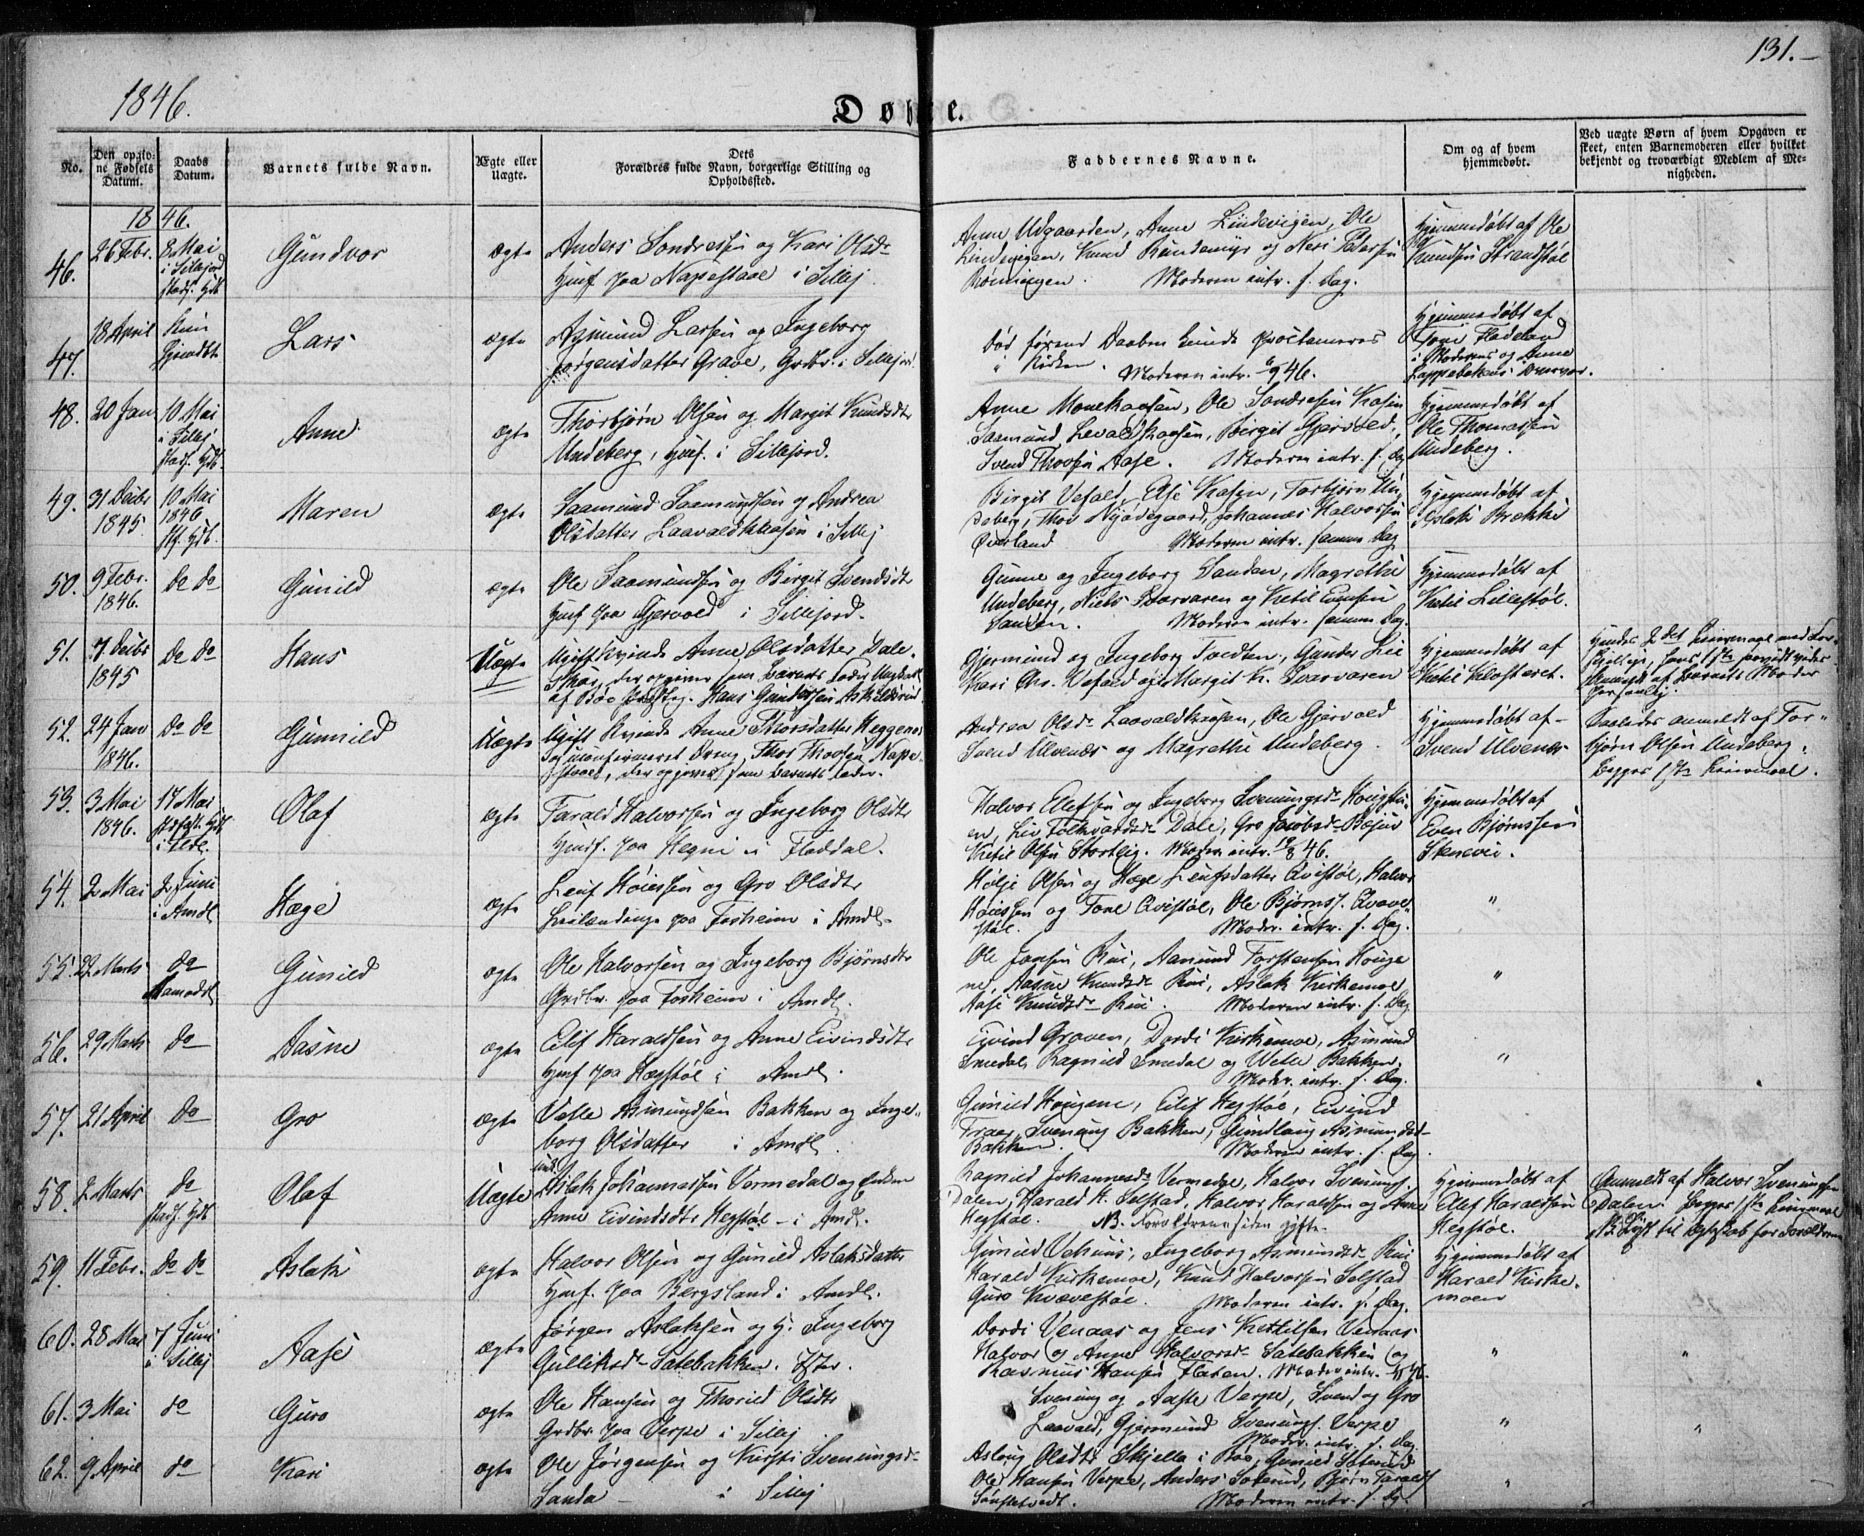 1846.
131.
Døbte.
No.
Den opgivne Fødsels Datum.
Daabs Datum.
Barnets fulde Navn.
Ægte eller Uægte.
Dets Forældres fulde Navn, borgerlige Stilling og Opholdssted.
Faddernes Navne.
Om og af hvem hjemmedøbt.
Ved uægte Børn af hvem Opgaven er skeet, enten Barnemoderen eller hvilket bekjendt og troværdigt Medlem af Menigheden.
1846.
46.
26 Febr.
8 Mai i Sillejord
Gundvor
ægte
Anders Sondresen og Kari Olsd-
Huusf paa Napestaae i Sillej.
Anne Udgaarden, Anne Lindevigen, Ole
Lindevigen, Knud Rundemyr og Neri Pedersen
Rønningen. Moderen intr. s. Dag.
Hjemmedøbt af Ole
Knudsen Strandstøl
47.
18 April
Lars
ægte
Asmund Larsen og Ingeborg
Jørgensdatter Grave, Grdbr. i Sillejord
død førend Daaben kunde proclameres
i Kirken. Moderen intr. 6/9 46.
Hjemmedøbt af
Tone Fladeland
i Moderens og Anne
48.
20 Jan
10 Mai i Sillej
Anne
ægte
Thorbjørn Olsen og Margit Knudsdtr
Undeberg, Huusf. i Sillejord.
Saamund Levaldkaasen, Birgit Gjervold,
Svend Thovsen Aase. Moderen intr. s. Dag
Hjemmedøbt af
Ole Thomassen
Undeberg.
49.
31 Decbr 1845
10 Mai 1846
Maren
ægte
Saamund Saamundsen og Andrea
Olsdatter Laavaldkaasen i Sillej
Birgit Vefald, Else Kaasen, Torbjørn Un-
deberg, Thov Nyodegaard, Johannes Halvorsen
Øverland Moderen intr. samme Dag
Hjemmedøbt af
Aslak Brekke
50.
9 Febr. 1846.
do do
Gunild
ægte
Ole Saamundsen og Birgit Svendsdtr
Huusf paa Gjervold i Sillejord.
Gunne og Ingeborg Sanden, Magrethe
Undeberg, Niels Storvaren og Ketil Evensen
Sanden. Moderen intr. samme Dag.
Hjemmedøbt af
Ketil Lillestøl.
51.
7 Decbr 1845
do do
Hans
Uægte
Ugift Kvinde Anne Olsdatter Dale-
Gjermund og Ingeborg Tvedten, Gunder Lie
Kari Chr. Vefald og Margit K. Storvaren
Hjemmedøbt af
Ketil Klosteret.
52.
24 Jan 1846.
do do
Gunnild
Uægte
Ugift Kvinde Anne Thorsdatter Heggenes
og uconfirmeret Dreng Thor Thovsen Nape-
staae, der opgives som Barnets Fader.
Andrea Olsd- Laavaldkaasen, Ole Gjervold
Svend Ulvenæs og Magrethe Undeberg.
Hjemmedøbt af
Svend Ulvenæs
Saaledes anmeldt af Tor-
bjørn Olsen Undeberg.
Begges 1ste Leiermaal.
53.
3 Mai 1846.
17 Mai
Olaf
ægte
Tarald Halvorsen og Ingeborg Olsdtr
Huusf. paa Hegni i Fladdal.
Halvor Ellefsen og Ingeborg Sveningsd-
Ketil Olsen
Hjemmedøbt af
Even Bjørnsen
54.
2 Mai
2 Juni i Amdl
Hæge
ægte
Leif Høiesen og Gro Olsdtr
Leilændinge paa Fosheim i Amdl-
Hølje Olsen og Hæge Leifsdatter Qvistøl, Halvor
Høiesen og Tone Qvistøl, Ole Bjørns. Qvave-
støl. Moder. intr. s. Dag.
"
55.
22 Marts
do
Gunild
ægte
Ole Halvorsen og Ingeborg Bjørnsdtr
Grdbr. paa Fosheim i Amdl.
Ole Jonsen Rui, Aamund Torstensen Houge
ne, Aasne Knudsd- Rui, Aslak Kirkemoe,
Aase Knudsd- Rui. Moderen intr. s. Dag
"
56.
29 Marts
do
Aasne
ægte
Eilif Haraldsen og Anne Eivindsdtr
Huusf paa Hægstøl i Amdl.
Eivind Graven, Dordi Kirkemoe, Asmund
Smedal, Ragnild Smedal og Vetle Bakken,
Moder. intr. s. Dag.
"
57.
21 April
do
Gro
ægte
Vetle Asmundsen Bakken og Inge-
borg Olsdatter i Amdl.
Gunild Hougene, Eilif Hegstøl, Eivind
Traae, Svening Bakken, Gundlaug Asmundsd-
Bakken. Moderen intr. s. Dag.
58.
2 Marts
do
Olaf
Uægte
Aslak Johannessen Vormedal og Enken
Anne Eivindsdtr Hegstøl - i Amdl.
Ragnild Johannesd- Vermedal, Halvor Svenings.
Dalen, Harald H. Selstad, Halvor Haraldsen og Anne
Hegstøl. NB. Forældrene siden gifte
Hjemmedøbt af
Ellef Haraldsen
Hegstøl.
Anmeldt af Halvor Sveningsen
Dalen. Begges 1ste Leiermaal
NB. Lyst til Ægteskab for Forældrene
59.
11 Febr.
do do
Aslak
ægte
Halvor Olsen og Gunild Aslaksdatter
Huusf. paa Bergsland i Amdl.
Gunild Vehuus, Ingeborg Asmundsd- Rui
Harald Kirkemoe, Knud Halvorsen Selstad
Guro Kvævestøl. Moderen intr. s. Dag.
Hjemmedøbt af
Harald Kirke-
moen
60.
28 Mai
7 Juni i Sillej
Aase
ægte
Jørgen Aslaksen og H. Ingeborg
Gulliksd- Satebakken.
Dordi Venaas og Jens Kettilsen Venaas
Halvor og Anne Halvorsd- Satebakken og
Rasmus Hansen Flaten. Moder intr.
"
"
61.
3 Mai
do
Guro
ægte
Ole Hansen og Thorild Olsdtr
Grdbr paa Verpe i Sillej
Svening og Aaste Verpe, Svend og Gro
Laavald, Gjermund Svenings. Verpe
Moder. intr. s. Dag
"
"
62.
9 April
do
Kari
ægte
Ole Jørgensen og Kirsti Sveningsd-
Sanda - i Sillej
Aslaug Olsdtr Skjella i Bøe, Gunild
Ole Hansen Verpe, Anders
Moderen intr. s. Dg.
"